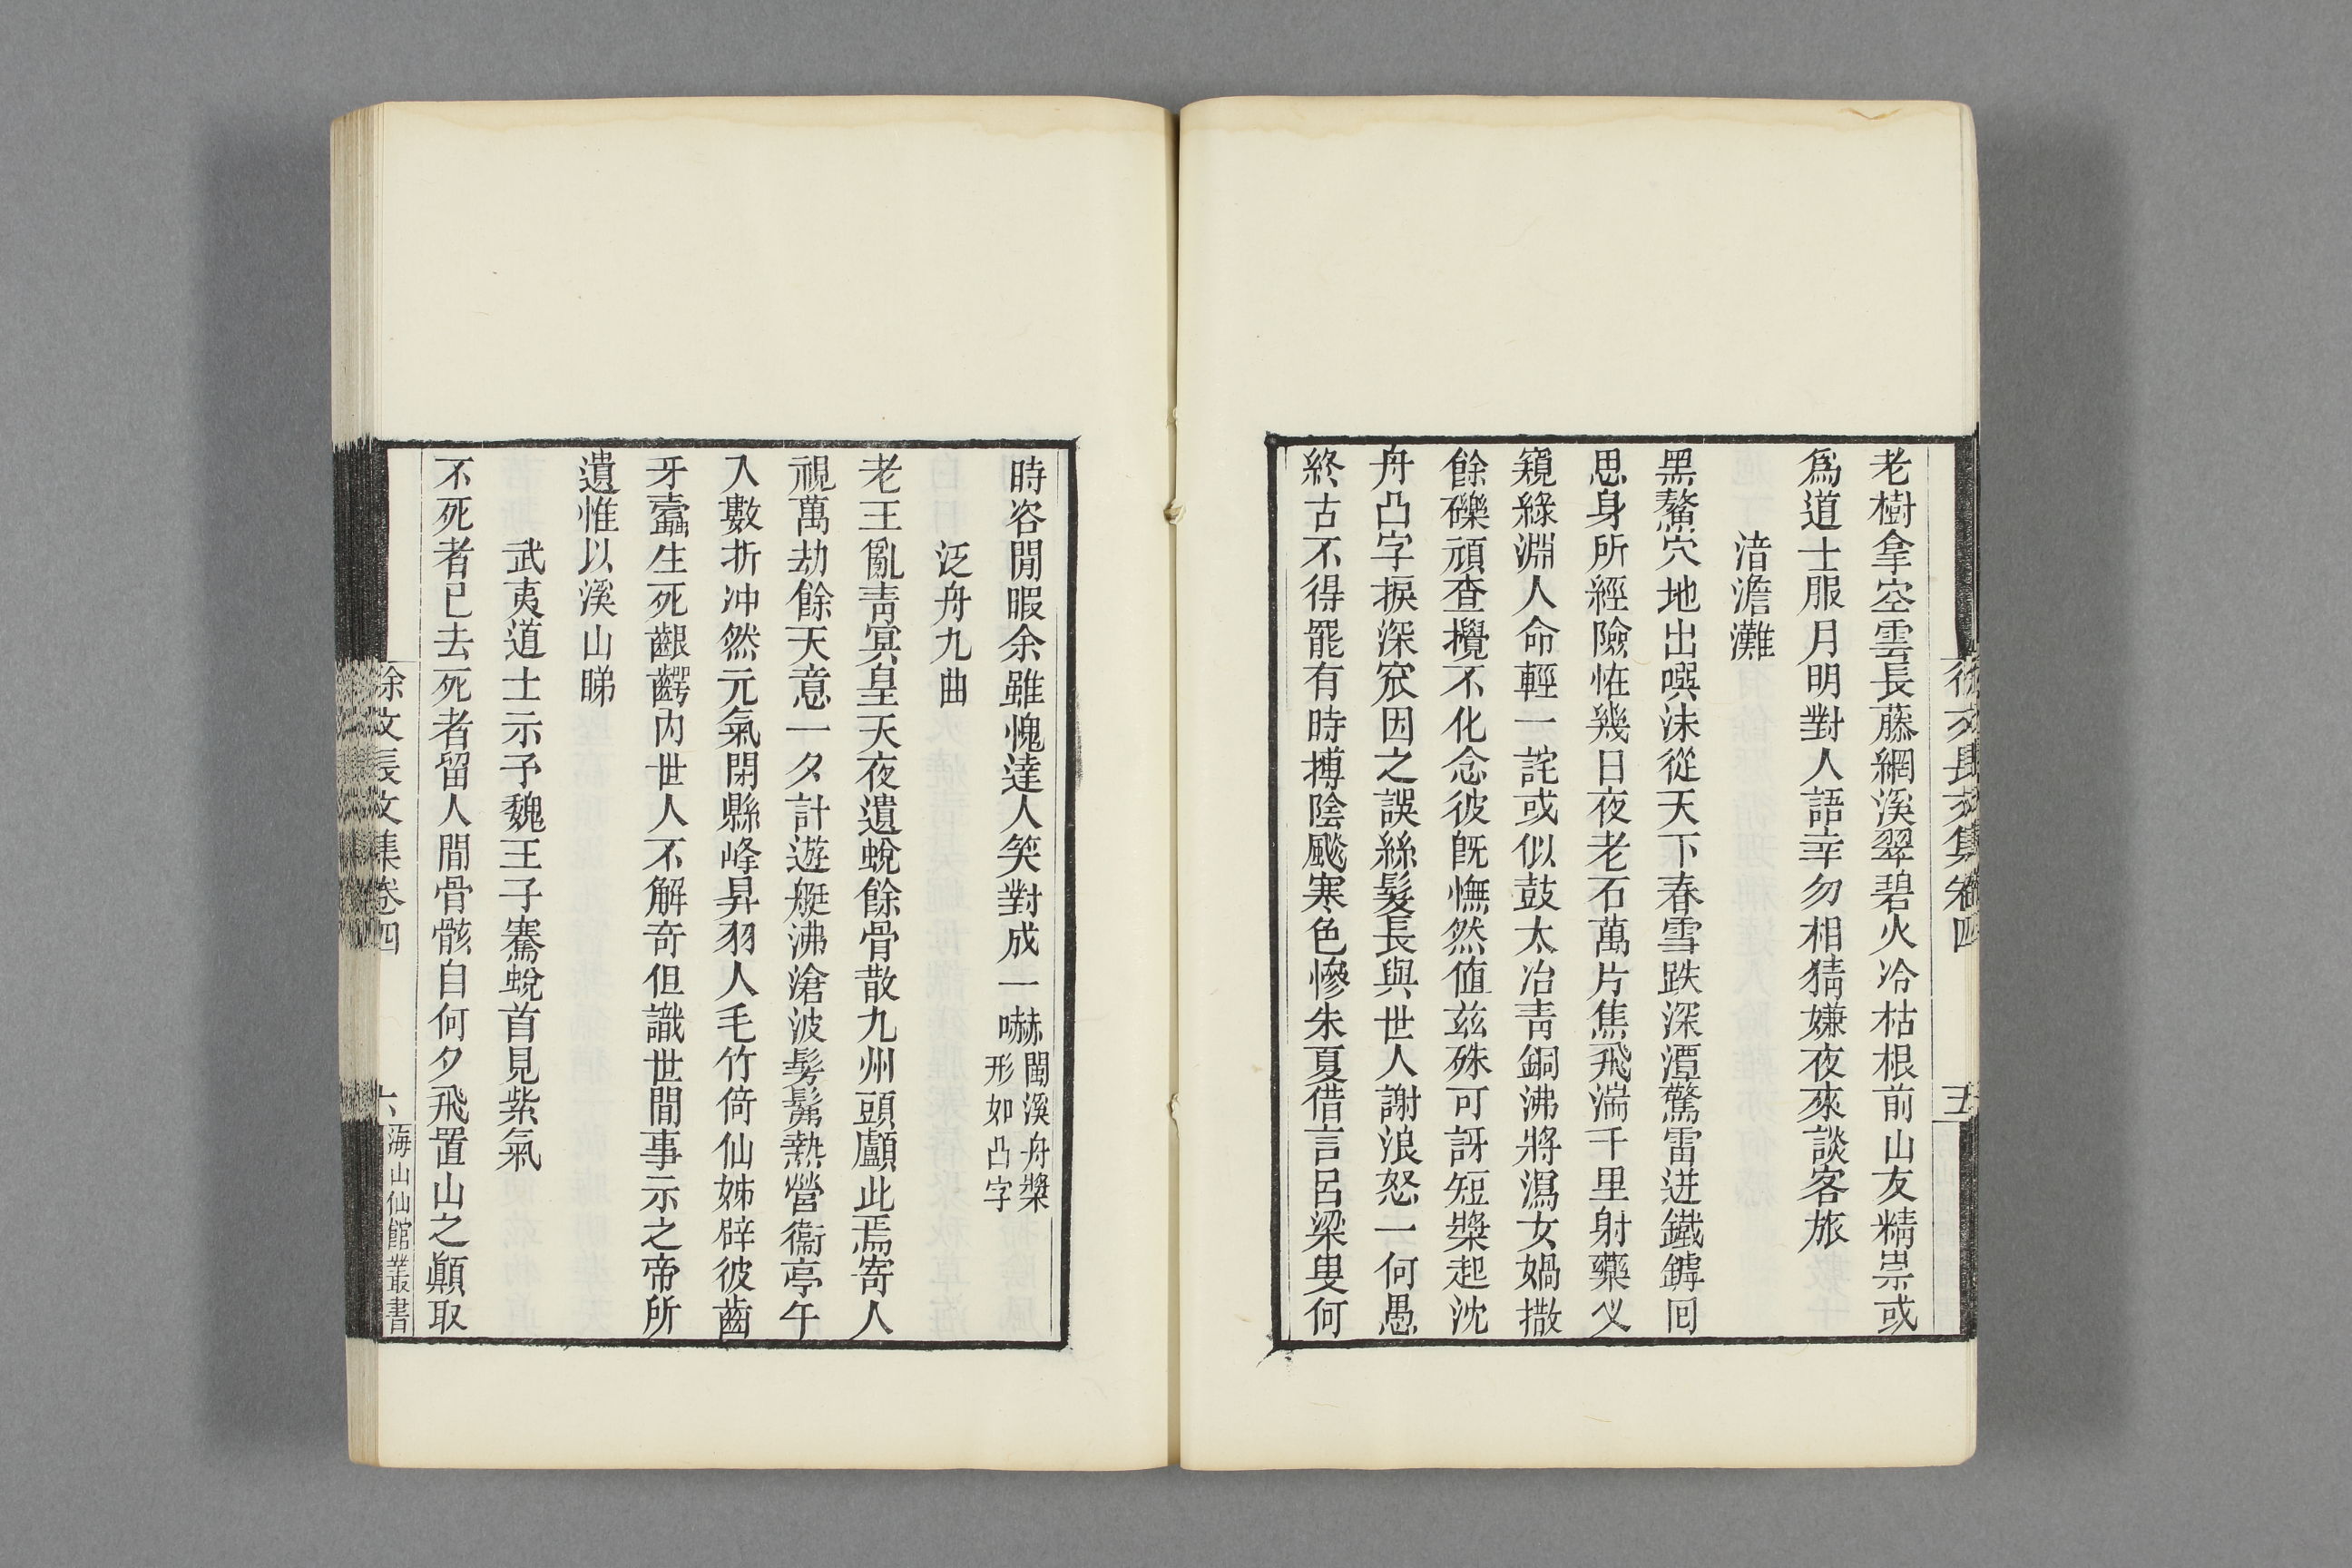 徐文長文集卷四
五
老樹拿空雲長藤網溪翠碧火冷枯根前山友精祟或
爲道士服月明對人語幸勿相猜嫌夜來談客旅
湆澹灘
黑鰲穴地出噀沫從天下春雪跌深潭驚雷迸鐵鏬囘
思身所經險恠幾日夜老石萬片焦飛湍千里射藥义
窺綠淵人命輕一詫或似鼓太冶靑銅沸將瀉女媧撒
餘礫頑查攪不化念彼旣憮然値兹殊可訝短槳起沈
舟凸字捩深窊因之誤絲髮長與世人謝浪怒一何愚
終古不得罷有時搏陰颷寒色慘朱夏借言呂梁叟何
時容閒暇余雖愧達人笑對成一嚇閩溪舟槳
形如凸字
泛舟九曲
老王亂靑冥皇天夜遺蛻餘骨散九州頭顱此焉寄人
視萬劫餘天意一夕計遊艇沸滄波髣髴熱營衞亭午
入數折冲然元氣閉縣峰昇羽人毛竹倚仙姊辟彼齒
牙蠹生死齦齶內世人不解奇但識世間事示之帝所
遺惟以溪山睇
武夷道士示予魏王子騫蛻首見紫氣
不死者已去死者留人間骨骸自何夕飛置山之顚取
徐文長文集卷四
六
海山仙館叢書